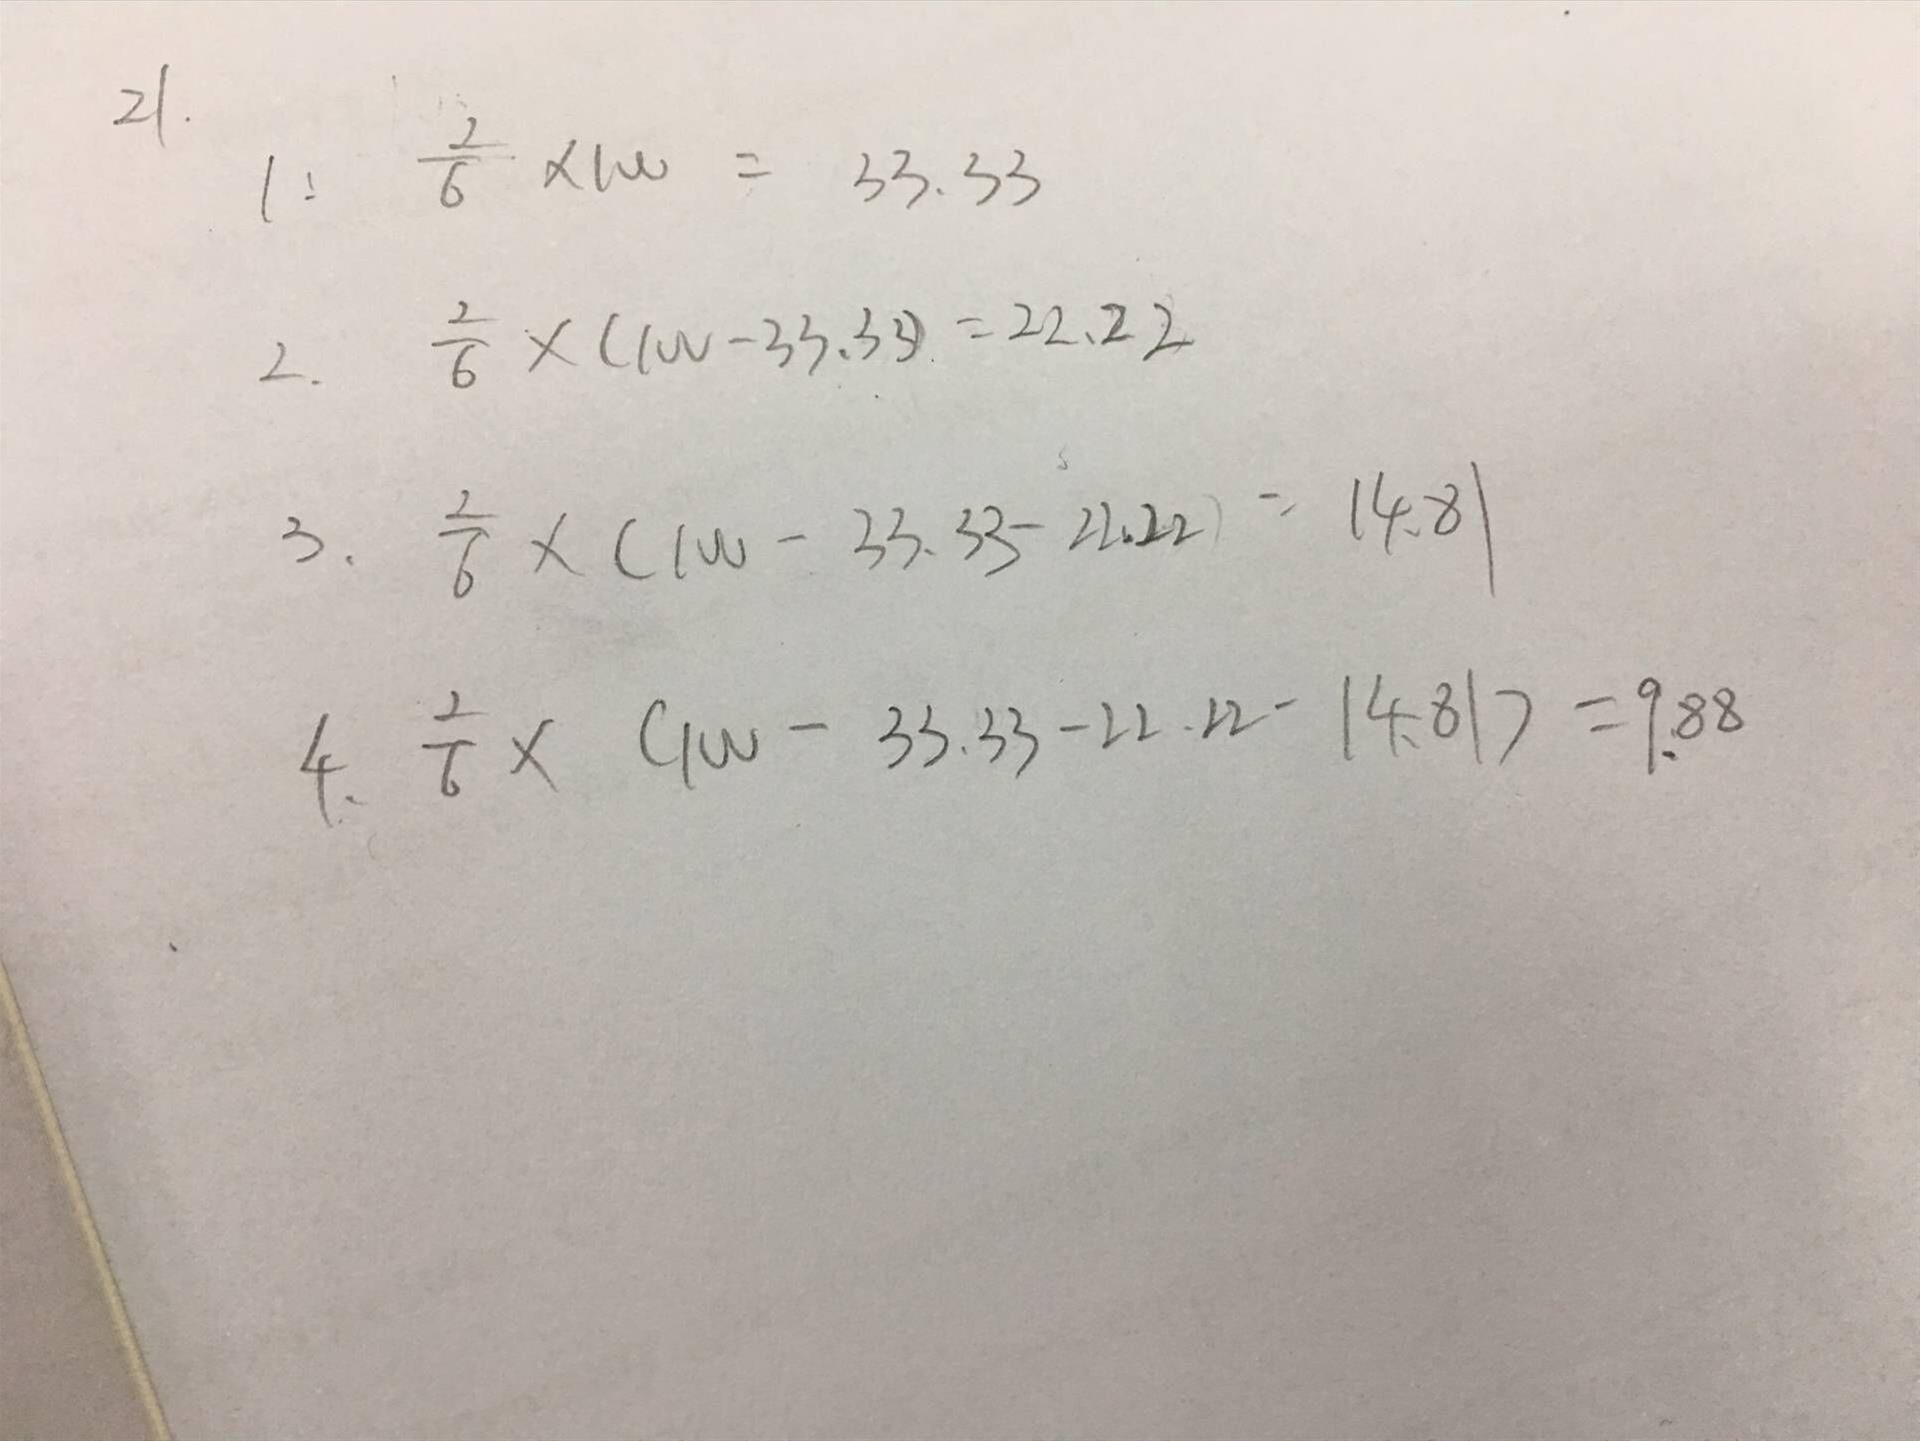 21.
1: 2/6 ×100 = 33.33
2. 2/6 × (100-33.33) =22.22
3. 2/6 × (100 - 33.33- 22.22) = 14.81
4. 2/6 × (100 - 33.33 -22.22- 14.81) =9.88